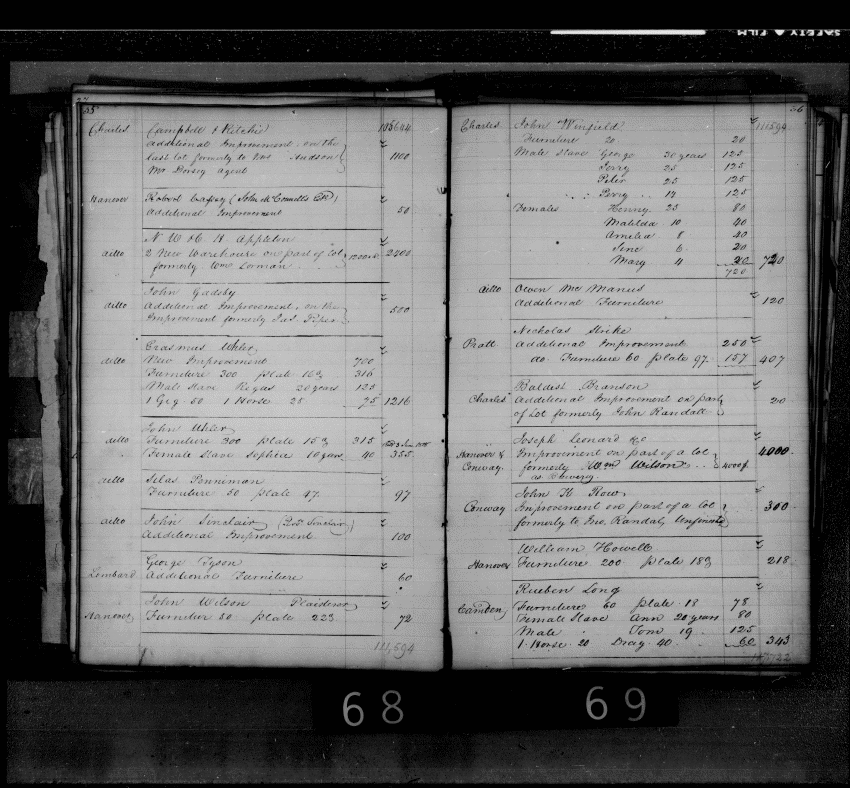 SAFETY FILM
35
Charles Campbell & Ritchie 105644
Additional Improvement, on the
last lot formerly to Mrs Hudson 1100
Mr Dorsey agent
Hanover Robert
Additional Improvement 50
N. W & C. H. Appleton
ditto 2 New Warehouse on part of lot 1200 2400
formerly Wm Lorman
John Gadsby
ditto Additional Improvement, on the 500
Improvement formerly Jas Piper
Erasmus Uhler
ditto New Improvement 700
Furniture 300 plate 16 316
Male Slave 20 years 125
1 Gig 50 1 Horse 25 75 1216
John Uhler
ditto Furniture 300 plate 15 315
Female Slave Sophia 10 years 40 355
ditto Silas Penneman
Furniture 50 plate 47 97
ditto John Sinclair (Robt Sinclair)
Additional Improvement 100
George Tyson
Lombard Additional Furniture 60
John Wilson Plaisterer
Hanover Furniture 50 plate 22 72
111,594
36
Charles John Winfield 111594
Furniture 20 20
Male Slave George 30 years 125
Jerry 25 125
Peter 25 125
Perry 17 125
Females Henny 25 80
Matilda 10 40
Amelia 8 40
Jene 6 20
Mary 4 20 720
720
ditto Owen Mc Manus
Additional Furniture 120
Nicholas Strike
Pratt Additional Improvement 250
do Furniture 60 plate 97 157 407
Baldest Branson
Charles Additional Improvement on part 20
of Lot formerly John Randall
Joseph Leonard &c
Hanover & Improvement on part of a lot 4000
Conway formerly Wm Wilson 4000
as Brewery
John H Row
Conway Improvement on part of a lot 300
formerly to Randal, Unfinished
William Howell
Hanover Furniture 200 plate 18 218
Rueben Long
Camden Furniture 60 plate 18 78
Female Slave Ann 20 years 80
Male Tom 19 125
1 Horse 20 Dray 40 60 343
68
69